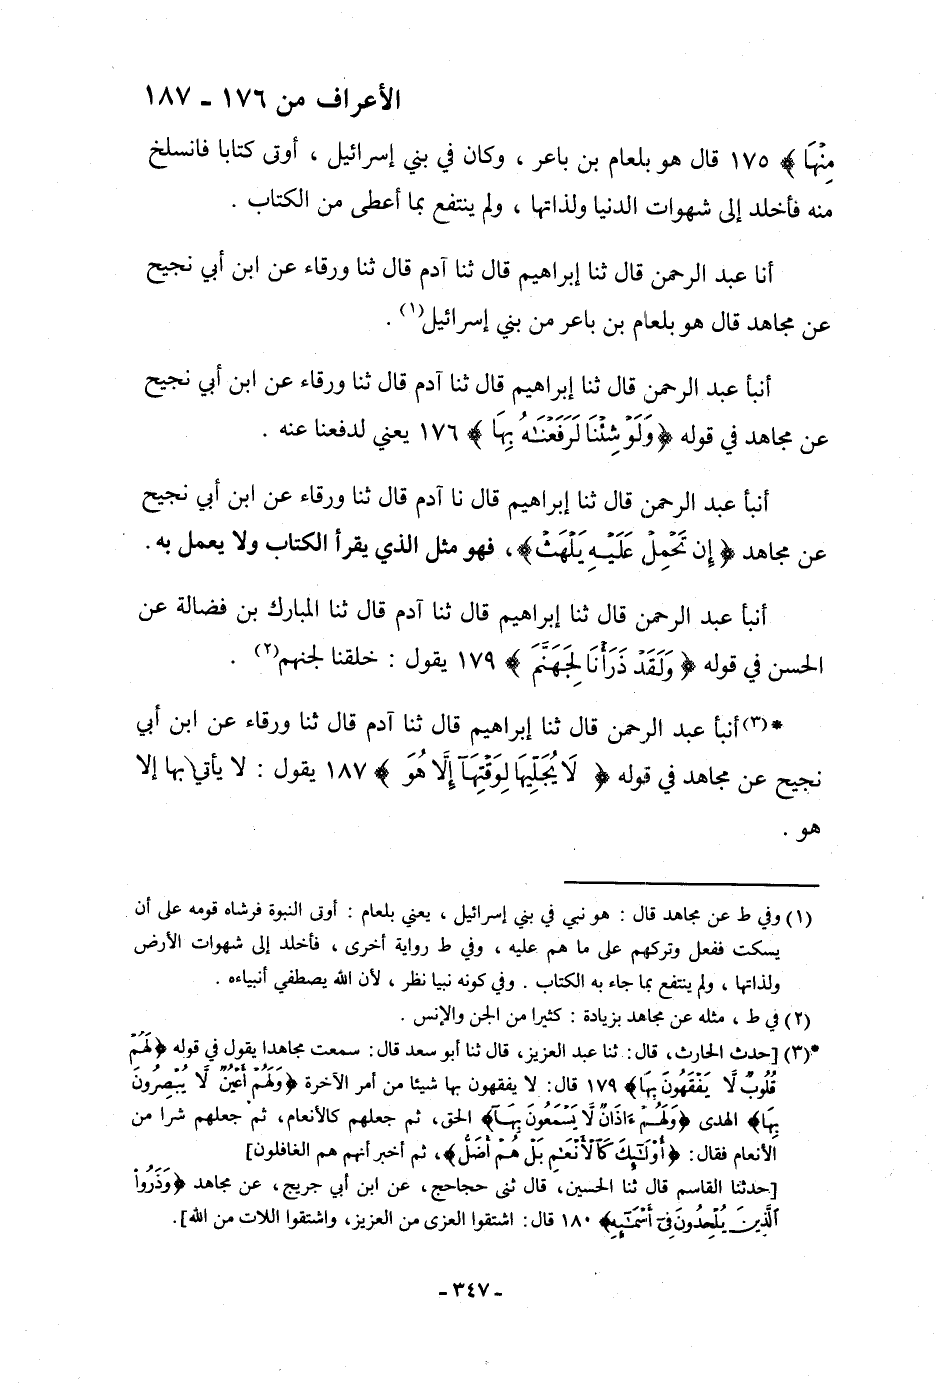 الأعراف من ١٧٦ - ١٨٧
مِنْهَا ﴾ ١٧٥ قال هو بلعام بن باعر ، وكان في بني إسرائيل ، أوتى كتابا فانسلخ
منه فأخلد إلى شهوات الدنيا ولذاتها ، ولم ينتفع بما أعطى من الكتاب .
أنا عبد الرحمن قال ثنا إبراهيم قال ثنا آدم قال ثنا ورقاء عن ابن أبي نجيح
عن مجاهد قال هو بلعام بن باعر من بني إسرائيل(١) .
أنبأ عبد الرحمن قال ثنا إبراهيم قال ثنا آدم قال ثنا ورقاء عن ابن أبي نجيح
عن مجاهد في قوله ﴿ وَلَوْ شِئْنَا لَرَفَعْنَٰهُ بِهَا ﴾ ١٧٦ يعني لدفعنا عنه .
أنبأ عبد الرحمن قال ثنا إبراهيم قال نا آدم قال ثنا ورقاء عن ابن أبي نجيح
عن مجاهد ﴿ إِن تَحْمِلْ عَلَيْهِ يَلْهَثْ ﴾، فهو مثل الذي يقرأ الكتاب ولا يعمل به.
أنبأ عبد الرحمن قال ثنا إبراهيم قال ثنا آدم قال ثنا المبارك بن فضالة عن
الحسن في قوله ﴿ وَلَقَدْ ذَرَأْنَا لِجَهَنَّمَ ﴾ ١٧٩ يقول : خلقنا لجنهم(٢) .
*(٣) أنبأ عبد الرحمن قال ثنا إبراهيم قال ثنا آدم قال ثنا ورقاء عن ابن أبي
نجيح عن مجاهد في قوله ﴿ لَا يُجَلِّيهَا لِوَقْتِهَآ إِلَّا هُوَ ﴾ ١٨٧ يقول : لا يأتي بها إلا
هو .
(١) وفي ط عن مجاهد قال : هو نبي في بني إسرائيل ، يعني بلعام : أوتى النبوة فرشاه قومه على أن
يسكت ففعل وتركهم على ما هم عليه ، وفي ط رواية أخرى ، فأخلد إلى شهوات الأرض
ولذاتها ، ولم ينتفع بما جاء به الكتاب . وفي كونه نبيا نظر ، لأن الله يصطفي أنبياءه .
(٢) في ط ، مثله عن مجاهد بزيادة : كثيرا من الجن والإنس .
*(٣) [حدث الحارث، قال: ثنا عبد العزيز، قال ثنا أبو سعد قال: سمعت مجاهدا يقول في قوله ﴿لَهُمْ
قُلُوبٌ لَّا يَفْقَهُونَ بِهَا﴾ ١٧٩ قال: لا يفقهون بها شيئا من أمر الآخرة ﴿وَلَهُمْ أَعْيُنٌ لَّا يُبْصِرُونَ
بِهَا﴾ الهدى ﴿وَلَهُمْ ءَاذَانٌ لَّا يَسْمَعُونَ بِهَآ﴾ الحق، ثم جعلهم كالأنعام، ثم جعلهم شرا من
الأنعام فقال: ﴿أُوْلَٰٓئِكَ كَٱلْأَنْعَٰمِ بَلْ هُمْ أَضَلُّ﴾، ثم أخبر أنهم هم الغافلون]
[حدثنا القاسم قال ثنا الحسين، قال ثنى حجاجح، عن ابن أبي جريج، عن مجاهد ﴿وَذَرُواْ
ٱلَّذِينَ يُلْحِدُونَ فِىٓ أَسْمَٰٓئِهِ﴾ ١٨٠ قال: اشتقوا العزى من العزيز، واشتقوا اللات من الله].
- ٣٤٧ -